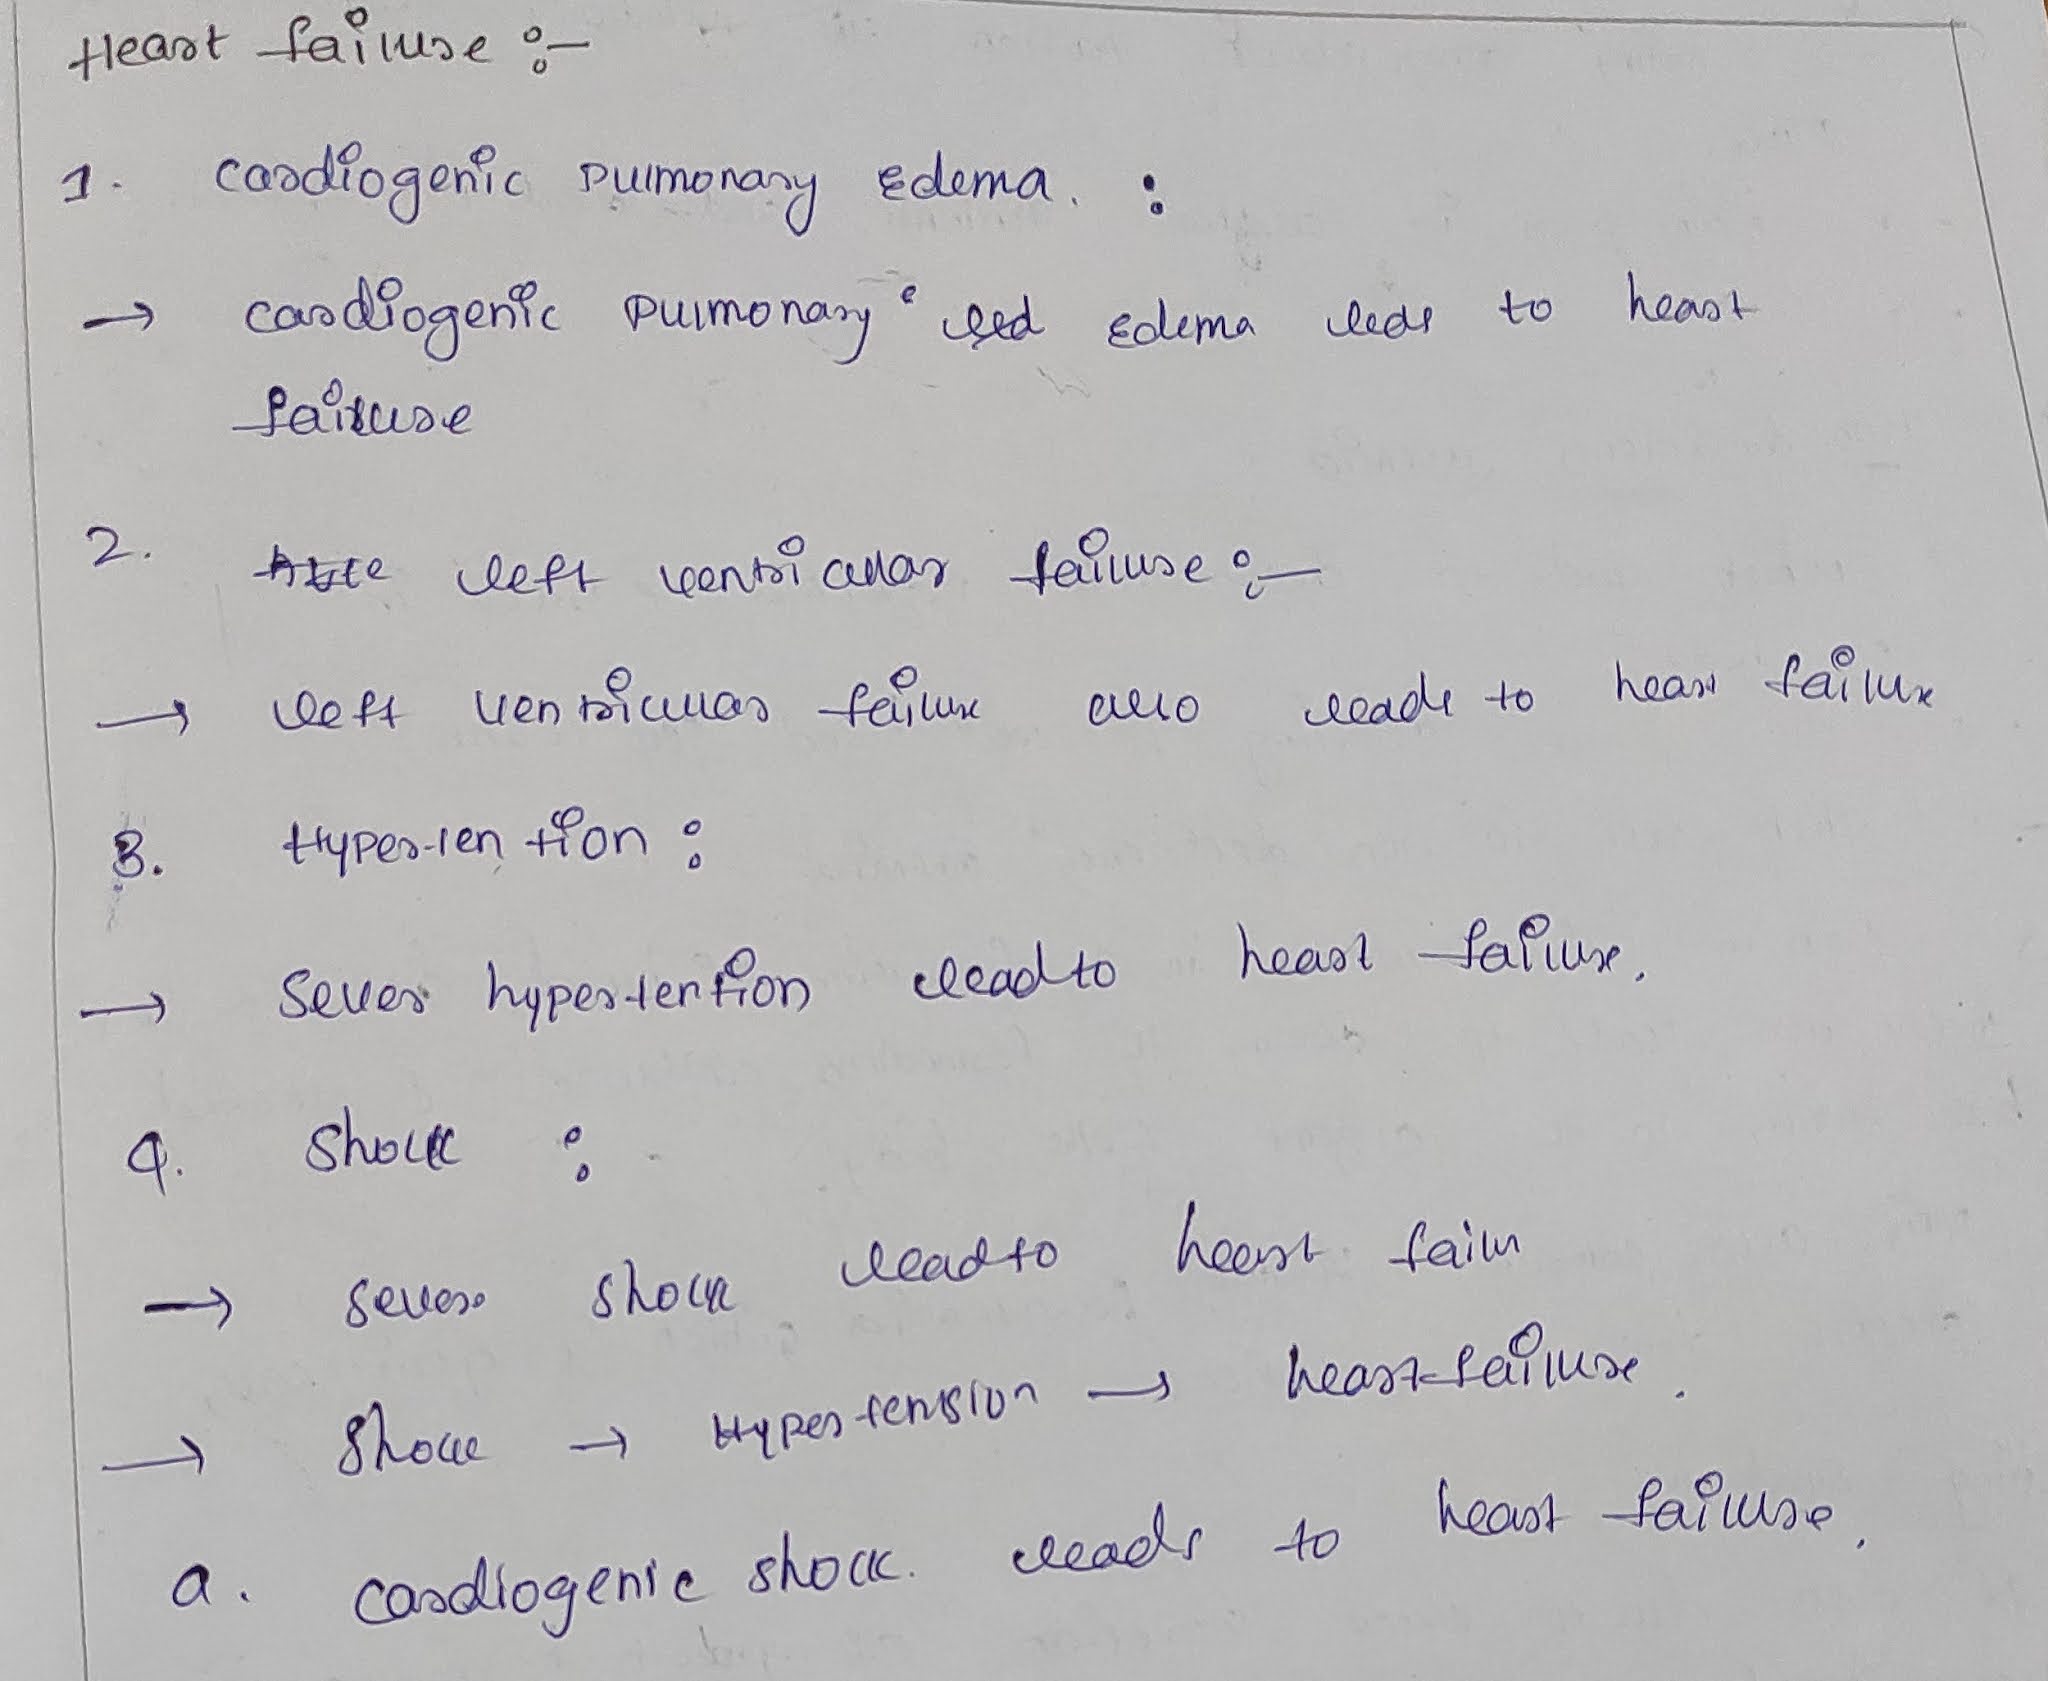 Heart failure :-
1. Cardiogenic Pulmonary Edema. :
→ Cardiogenic Pulmonary led Edema leds to heart
failure
2. left ventricular failure :-
→ left ventricular failure also leads to heart failure
3. Hypertention :
→ Sever hypertention lead to heart failure.
4. Shock :
→ severe shock lead to heart failu
→ Shock → Hypertension → heart failure.
a. cardiogenic shock. leads to heart failure.